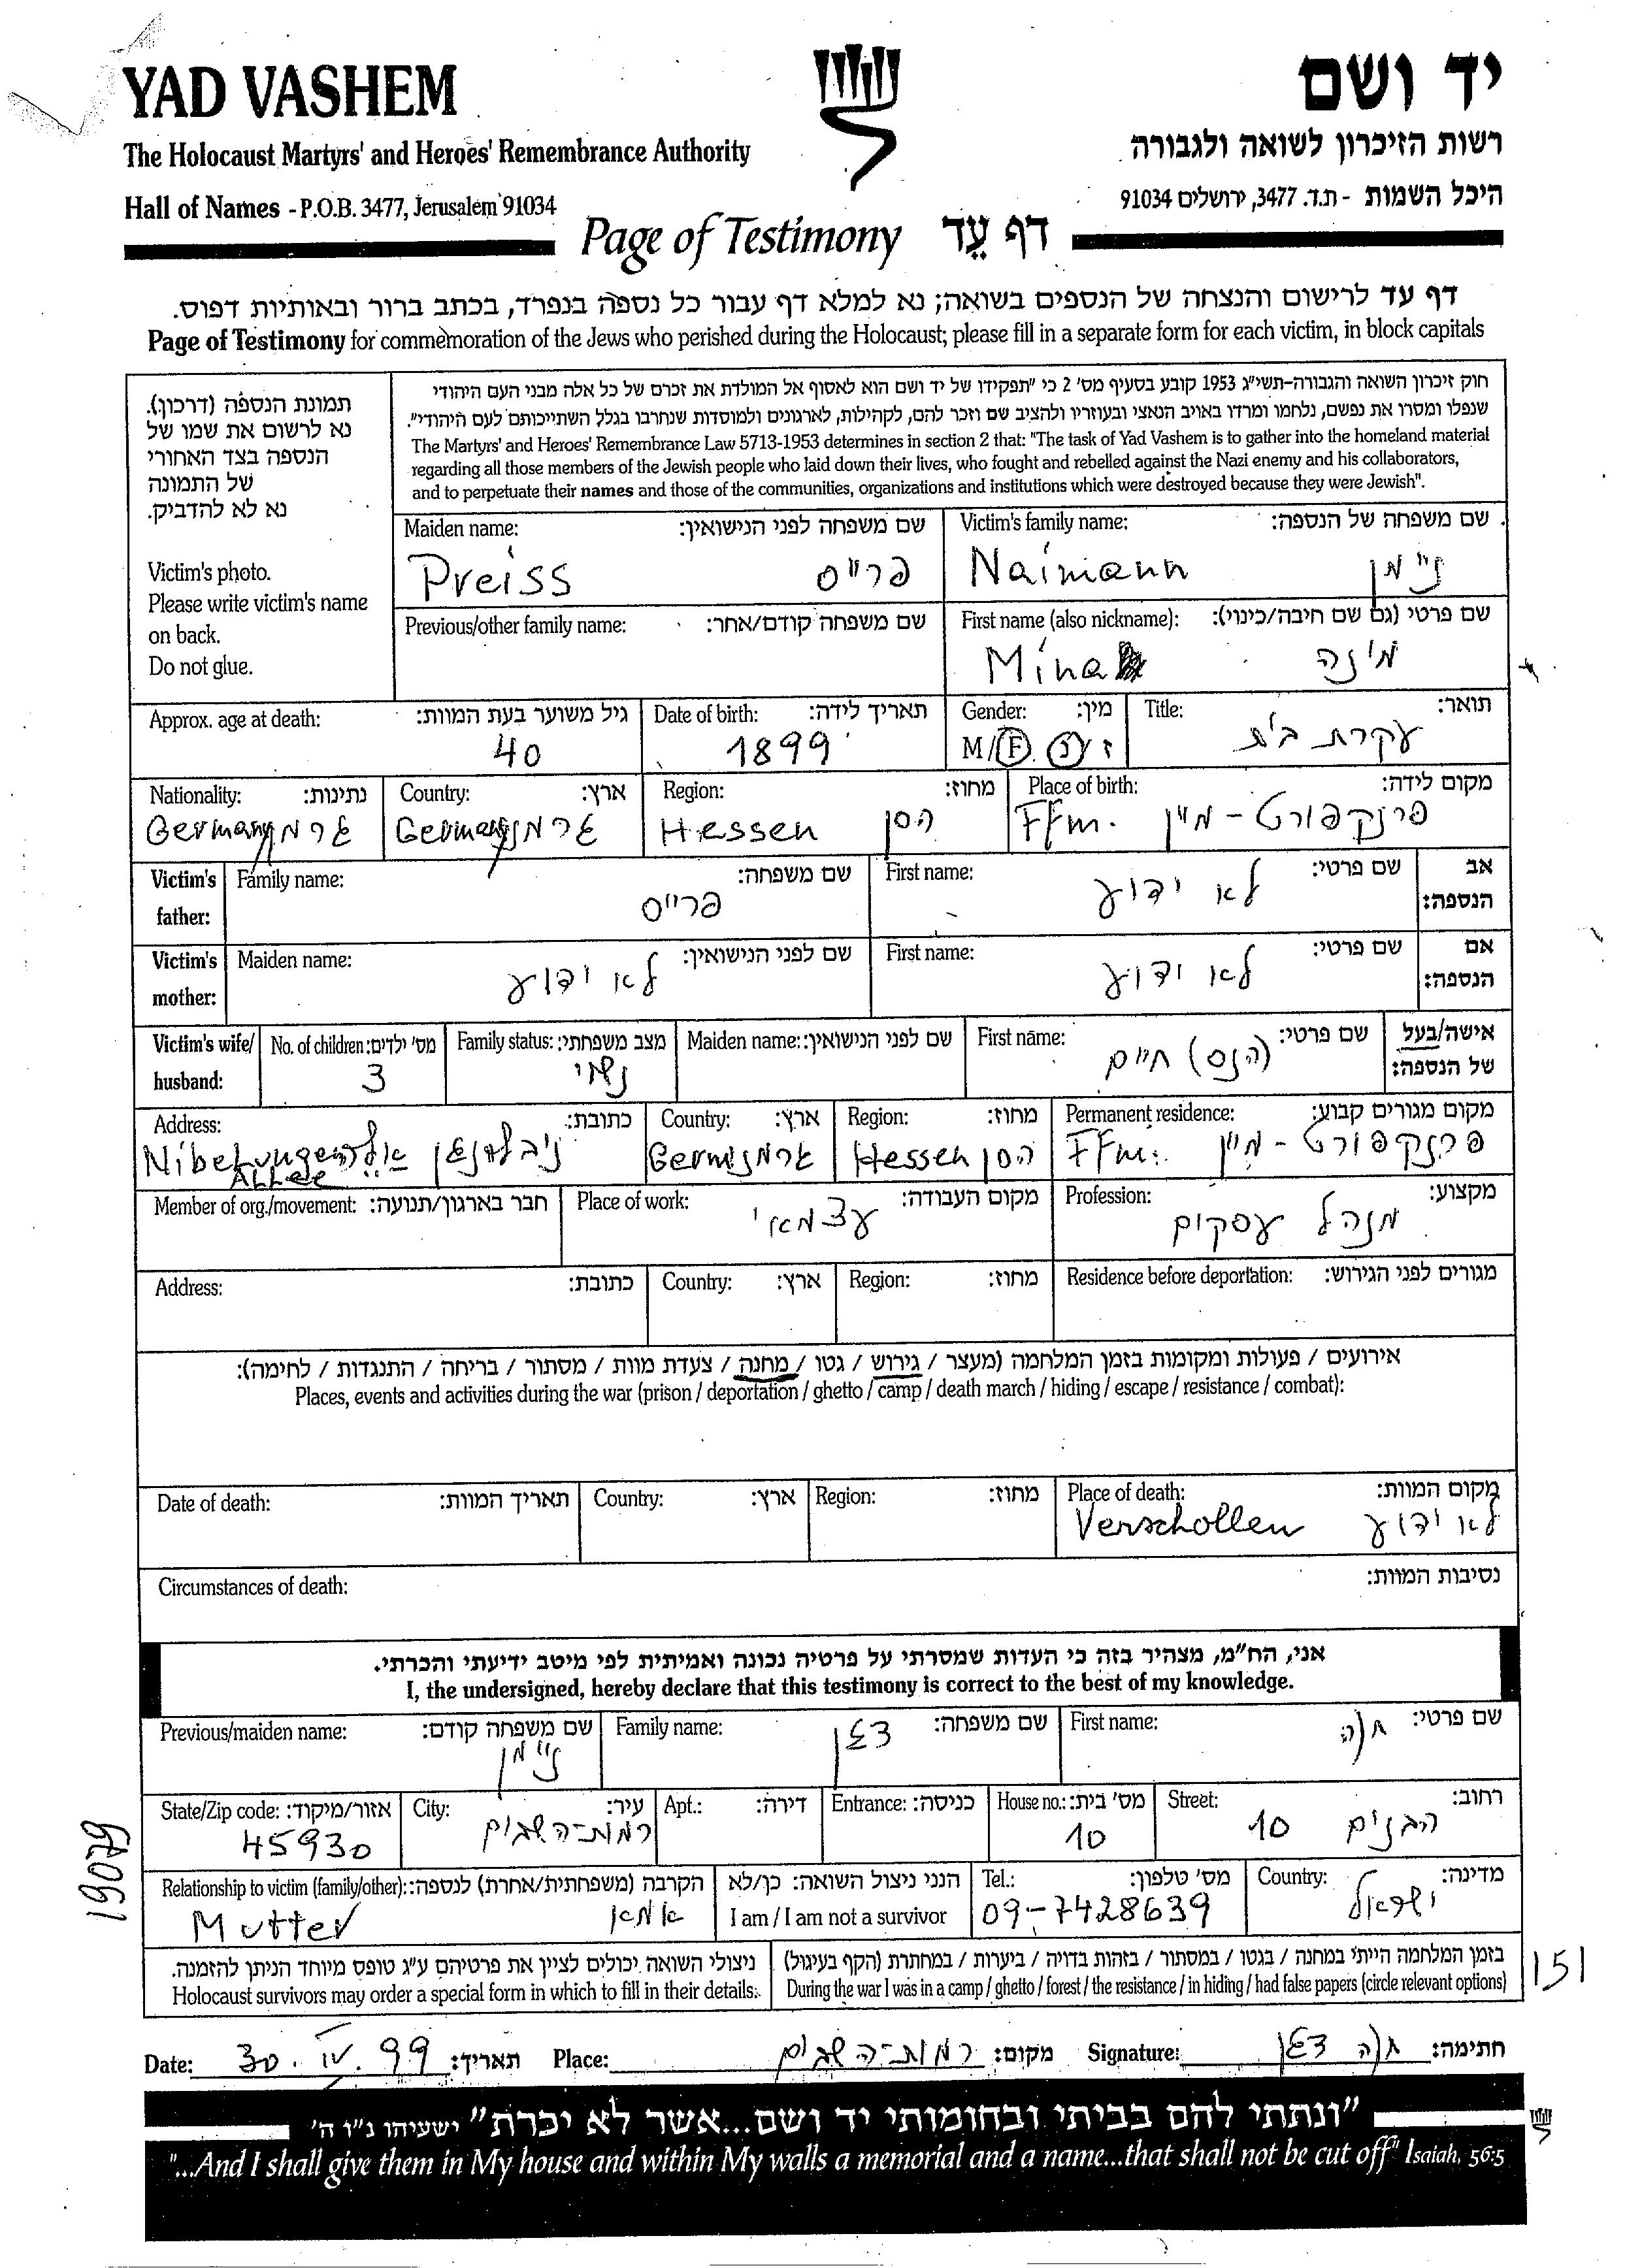 YAD VASHEM
יד ושם
The Holocaust Martyrs' and Heroes' Remembrance Authority
רשות הזיכרון לשואה ולגבורה
Hall of Names - P.O.B. 3477, Jerusalem 91034
היכל השמות - ת.ד. 3477, ירושלים 91034
Page of Testimony דף עֵד
דף עד לרישום והנצחה של הנספים בשואה; נא למלא דף עבור כל נספה בנפרד, בכתב ברור ובאותיות דפוס.
Page of Testimony for commemoration of the Jews who perished during the Holocaust; please fill in a separate form for each victim, in block capitals
תמונת הנספה (דרכון).
נא לרשום את שמו של
הנספה בצד האחורי
של התמונה
נא לא להדביק.
Victim's photo.
Please write victim's name
on back.
Do not glue.
חוק זיכרון השואה והגבורה-תשי"ג 1953 קובע בסעיף מס' 2 כי "תפקידו של יד ושם הוא לאסוף אל המולדת את זכרם של כל אלה מבני העם היהודי
שנפלו ומסרו את נפשם, נלחמו ומרדו באויב הנאצי ובעוזריו ולהציב שם וזכר להם, לקהילות, לארגונים ולמוסדות שנחרבו בגלל השתייכותם לעם היהודי".
The Martyrs' and Heroes' Remembrance Law 5713-1953 determines in section 2 that: "The task of Yad Vashem is to gather into the homeland material
regarding all those members of the Jewish people who laid down their lives, who fought and rebelled against the Nazi enemy and his collaborators,
and to perpetuate their names and those of the communities, organizations and institutions which were destroyed because they were Jewish".
Maiden name: שם משפחה לפני הנישואין: Victim's family name: שם משפחה של הנספה:
Preiss פרייס Naimann ניימן
Previous/other family name: שם משפחה קודם/אחר: First name (also nickname): שם פרטי (גם שם חיבה/כינוי):
Mina מינה
Approx. age at death: גיל משוער בעת המוות: Date of birth: תאריך לידה: Gender: מין: Title: תואר:
40 1899 M/F ז/נ עקרת בית
Nationality: נתינות: Country: ארץ: Region: מחוז: Place of birth: מקום לידה:
Germany גרמן Germany גרמן Hessen הסן Ffm. פרנקפורט - מיין
Victim's father: Family name: שם משפחה: First name: שם פרטי: אב הנספה:
פרייס לא ידוע
Victim's mother: Maiden name: שם לפני הנישואין: First name: שם פרטי: אם הנספה:
לא ידוע לא ידוע
Victim's wife/ husband: No. of children: מס' ילדים: Family status: מצב משפחתי: Maiden name: שם לפני הנישואין: First name: שם פרטי: אישה/בעל של הנספה:
3 נשוי (הנס) חיים
Address: כתובת: Country: ארץ: Region: מחוז: Permanent residence: מקום מגורים קבוע:
Nibelungen Allee ניבלונגן אליי Germ גרמן Hessen הסן Ffm. פרנקפורט - מיין
Member of org./movement: חבר בארגון/תנועה: Place of work: מקום העבודה: Profession: מקצוע:
עצמאי מנהל עסקים
Address: כתובת: Country: ארץ: Region: מחוז: Residence before deportation: מגורים לפני הגירוש:
אירועים / פעולות ומקומות בזמן המלחמה (מעצר / גירוש / גטו / מחנה / צעדת מוות / מסתור / בריחה / התנגדות / לחימה):
Places, events and activities during the war (prison / deportation / ghetto / camp / death march / hiding / escape / resistance / combat):
Date of death: תאריך המוות: Country: ארץ: Region: מחוז: Place of death: מקום המוות:
Verschollen לא ידוע
Circumstances of death: נסיבות המוות:
אני, הח"מ, מצהיר בזה כי העדות שמסרתי על פרטיה נכונה ואמיתית לפי מיטב ידיעתי והכרתי.
I, the undersigned, hereby declare that this testimony is correct to the best of my knowledge.
Previous/maiden name: שם משפחה קודם: Family name: שם משפחה: First name: שם פרטי:
ניימן דגן חוה
State/Zip code: אזור/מיקוד: City: עיר: Apt.: דירה: Entrance: כניסה: House no.: מס' בית: Street: רחוב:
45930 רמות-השבים 10 הבנים 10
Relationship to victim (family/other): הקרבה (משפחתית/אחרת) לנספה: הנני ניצול השואה: כן/לא Tel.: מס' טלפון: Country: מדינה:
Mutter אמא I am / I am not a survivor 09-7428639 ישראל
ניצולי השואה יכולים לציין את פרטיהם ע"ג טופס מיוחד הניתן להזמנה. בזמן המלחמה הייתי במחנה / בגטו / במסתור / בזהות בדויה / ביערות / במחתרת (הקף בעיגול)
Holocaust survivors may order a special form in which to fill in their details. During the war I was in a camp / ghetto / forest / the resistance / in hiding / had false papers (circle relevant options)
19079
151
Date: 30. IV. 99 תאריך: Place: רמות-השבים מקום: Signature: חוה דגן חתימה:
"ונתתי להם בביתי ובחומותי יד ושם...אשר לא יכרת" ישעיהו נ"ו ה'
"...And I shall give them in My house and within My walls a memorial and a name...that shall not be cut off" Isaiah, 56:5